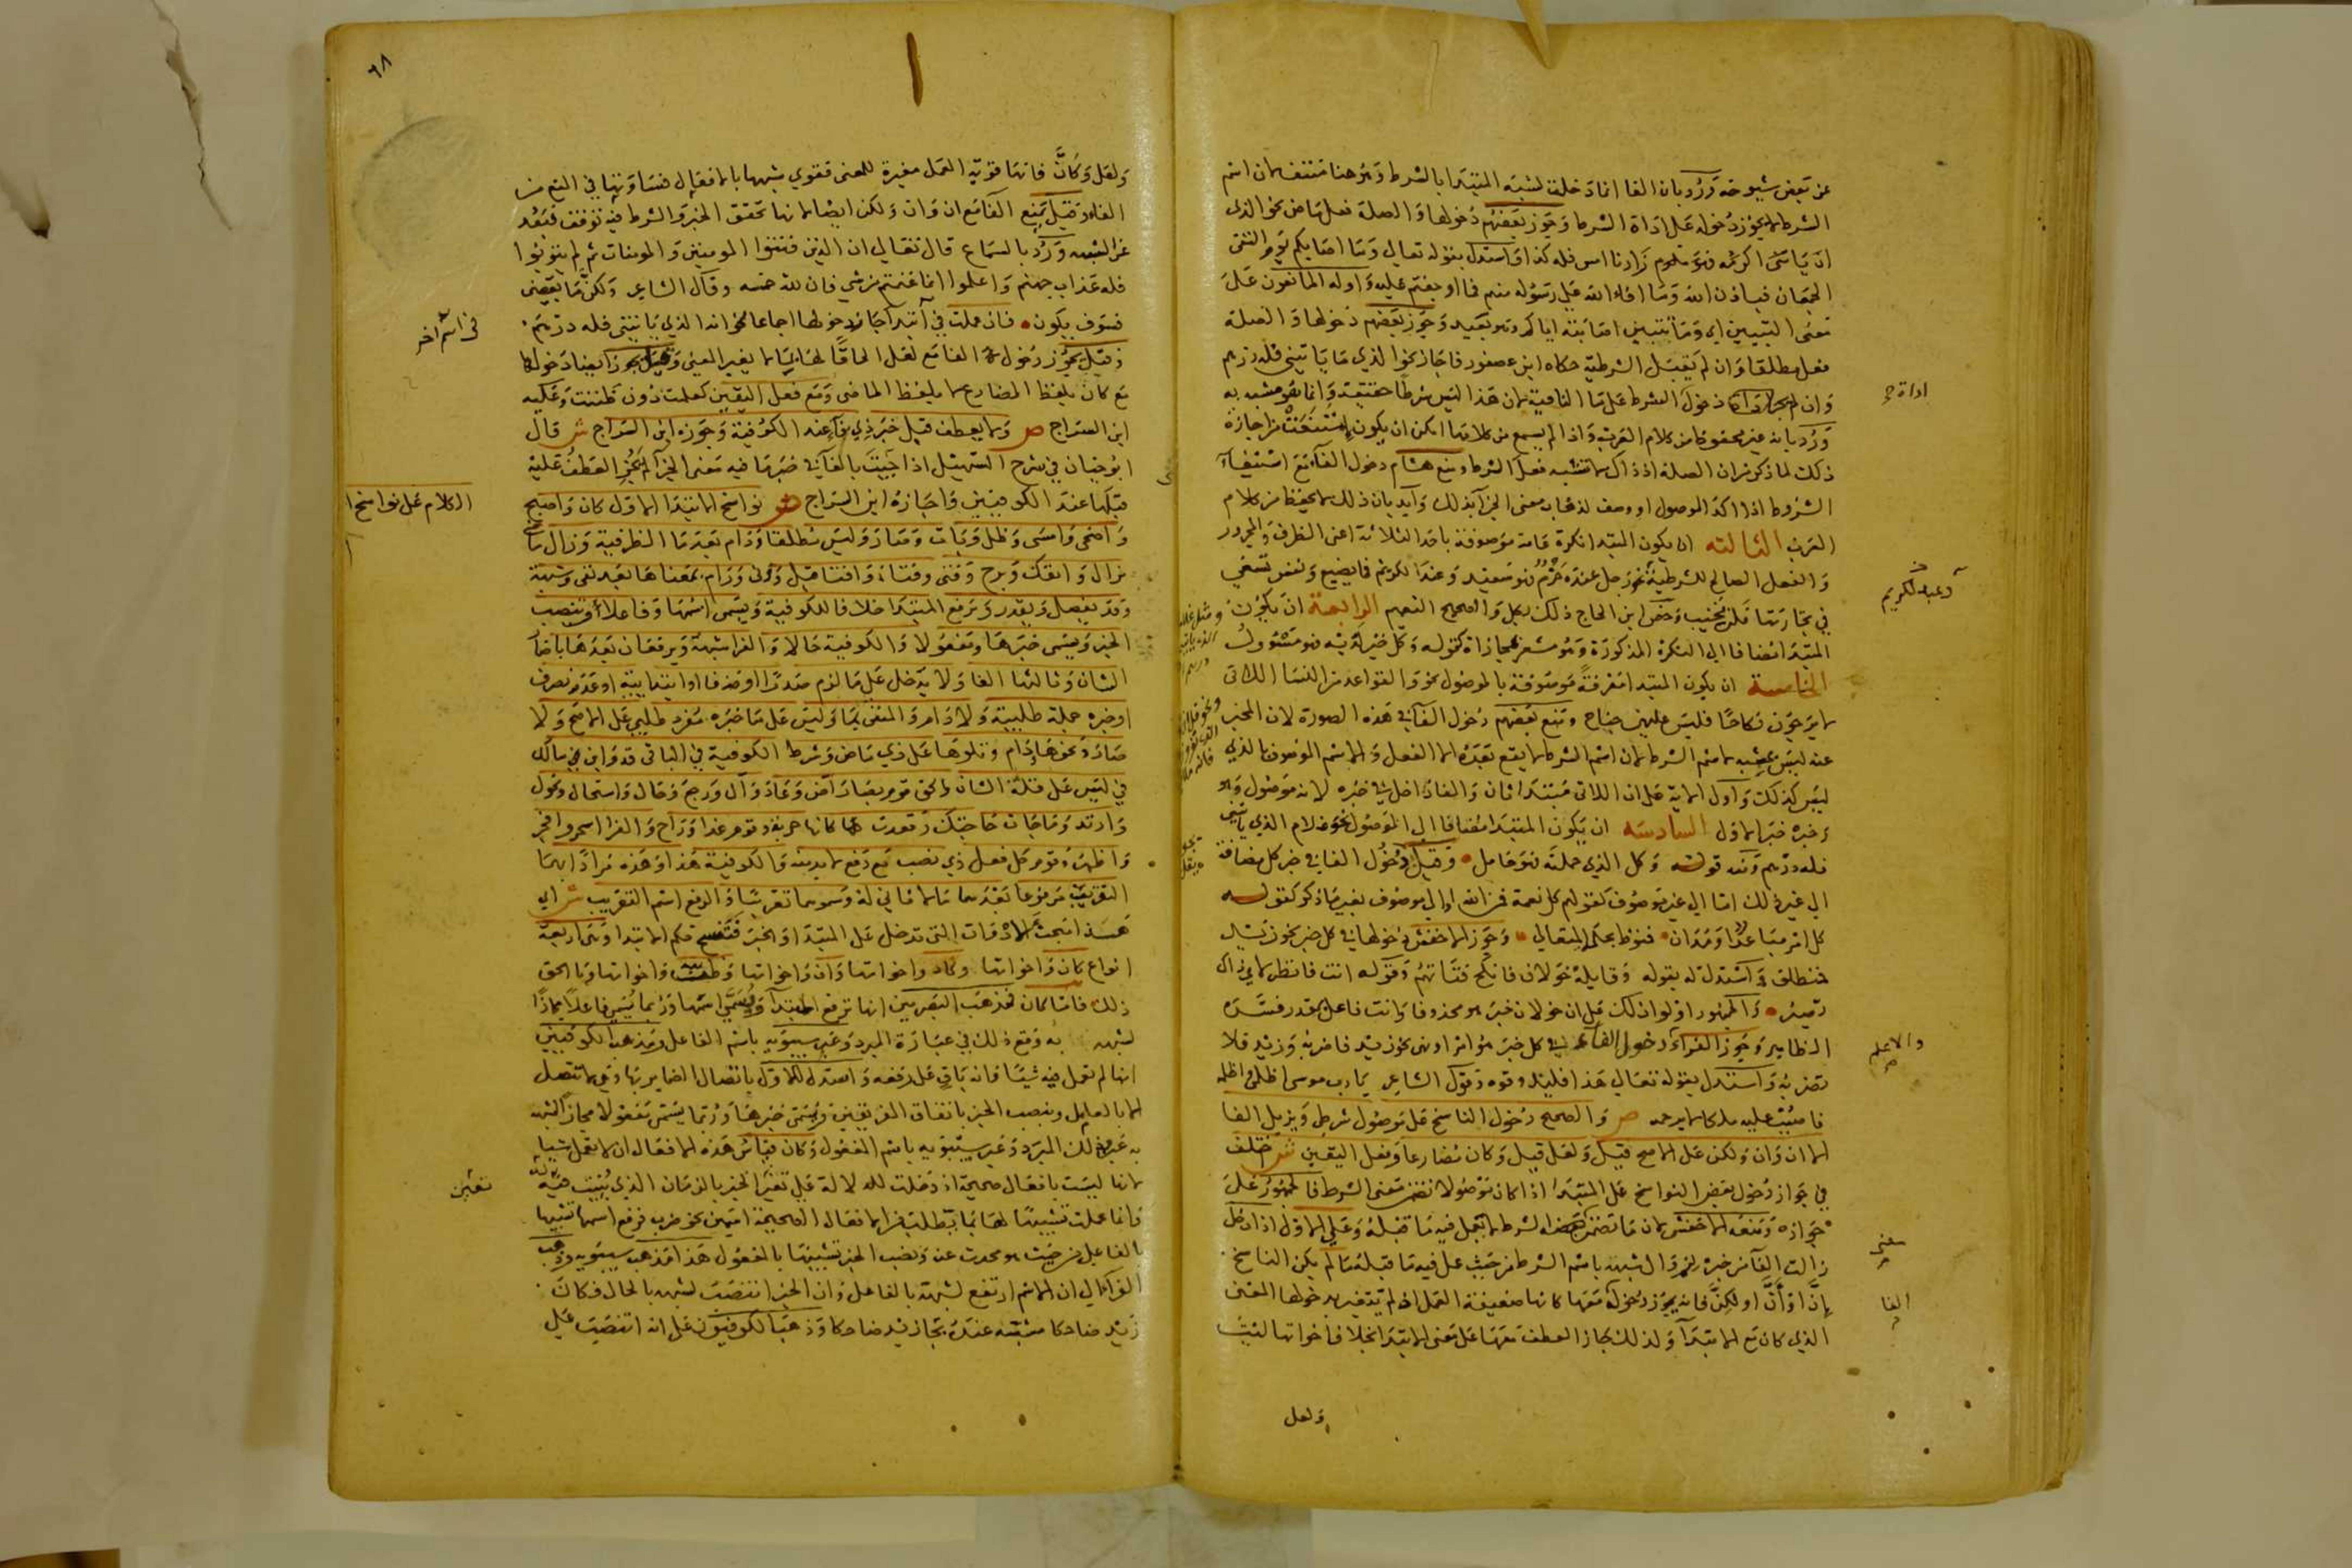 عن بعض شيوخه ورد بان الفا انما دخلت لشبه المبتدا بالشرط وهو هنا منتف لان اسم
الشرط لا يجوز دخوله على اداة الشرط وجوز بعضهم دخولها والصلة فعل ماض نحو الذي
الجمعان فباذن الله وما افاء الله على رسوله منهم فما اوجفتم عليه واوله المانعون على
معنى التبيين اي وما يتبين اصابته اياكم وهو بعيد وجوز بعضهم دخولها والصلة
فعل مطلقا وان لم يقبل الشرطية حكاه ابن عصفور فاجاز نحو الذي ما ياتيني فله درهم
دخول الشرط على ما النافية لان هذا ليس شرطا حقيقة وانما هو مشبه به
ورد بانه غير محفوظ من كلام العرب واذا لم يسمع من كلامها امكن ان يكون امتنعت من اجازة
ذلك لما ذكر من ان الصلة اذ ذاك لا تشبه فعل الشرط ومنع هشام دخول الفا مع استيفا
الشروط اذا اكد الموصول او وصف لذهاب معنى الجزا بذلك وايد بان ذلك لا يحفظ من كلام
العرب الثالثة ان يكون المبتدا نكرة عامة موصوفة باحد الثلاثة اعني الظرف والمجرور
والفعل الصالح للشرطية نحو رجل عنده حزم فهو سعيد وعبد لكريم فما يضيع ونفس تسعى
في نجاتها فلن تخيب وخص ابن الحاج ذلك بكل والصحيح التعميم الرابعة ان يكون
المبتدا مضافا الى النكرة المذكورة وهو مشعر بمجازاة كقوله وكل خير لديه فهو مسؤول
الخامسة ان يكون المبتدا معرفة موصوفة بالموصول نحو والقواعد من النسا اللاتي
لا يرجون نكاحا فليس عليهن جناح ومنع بعضهم دخول الفا في هذه الصورة لان المخبر
عنه ليس بمشبه لاسم الشرط لان اسم الشرط لا يقع بعده الا الفعل والاسم الموصوف بالذي
ليس كذلك واول الاية على ان اللاتي مبتدا ثان والفا داخل في خبره لانه موصول وهو
وخبره خبر الاول السادسة ان يكون المبتدا مضافا الى الموصول نحو غلام الذي ياتيني
فله درهم ومنه قوله وكل الذي حملته فهو حامل وقيل دخول الفا في خبر كل مضافة
الى غير ذلك اما الى غير موصوف كقولهم كل نعمة فمن الله او الى موصوف بغير ما ذكر كقوله
كل امر مباعد او مدان فمنوط بحكم المتعالي وجوز الاخفش دخولها في كل خبر نحو زيد
فمنطلق واستدل له بقوله وقايلة خولان فانكح فتاتهم وقوله انت فانظر لاي ذاك
تصير والجمهور اولوا ذلك على ان خولان خبر هو محذوفا وانت فاعل بمقدر فسره
الظاهر وجوز الفراء دخول الفا في كل خبر هو امر او نهي نحو زيد فاضربه وزيد فلا
تضربه واستدل بقوله تعالى هذا فليذوقوه وقول الشاعر يا رب موسى اظلمي واظلمه
فاصبب عليه ملكا لا يرحمه ص والصحيح دخول الناسخ على موصول شرط ويزيل الفا
الا ان وان ولكن على الاصح قيل ولعل قيل وكان مضارعا وفعل اليقين ش اختلف
في جواز دخول بعض النواسخ على المبتدا اذا كان موصولا تضمن معنى الشرط فالجمهور على
جوازه ومنعه الاخفش لان ما تضمن معنى الشرط لا يعمل فيه ما قبله وعلى الاول اذا دخل
زالت الفا من خبره لزوال شبهه باسم الشرط من حيث عمل فيه ما قبله ما لم يكن الناسخ
ان او ان او لكن فانه يجوز دخوله معها لانها ضعيفة العمل اذ لم يتغير بدخولها المعنى
الذي كان مع الابتدا ولذلك جاز العطف معها على معنى الابتدا بخلاف اخواتها ليت
ولعل
اداة
وعبد لكريم
والاعلم
معنى
الفا
٦٨
ولعل وكان فانها قوية العمل مغيرة للمعنى فقوي شبهها بالافعال فساوتها في المنع من
الفاء وقيل تمنع الفا مع ان وان ولكن ايضا لانها تحقق الخبر والشرط فيه توقف فبعد
عن الشبه ورد بالسماع قال تعالى ان الذين فتنوا المومنين والمومنات ثم لم يتوبوا
فلهم عذاب جهنم واعلموا انما غنمتم من شي فان لله خمسه وقال الشاعر ولكن ما يقضى
فسوف يكون فان عملت في اسم اخر جاز دخولها اجماعا نحو انه الذي ياتيني فله درهم
وقيل يجوز دخول الفا مع لعل الحاقا لها بان لا يغير المعنى وقيل يجوز ايضا دخولها
مع كان بلفظ المضارع لا بلفظ الماضي ومع فعل اليقين كعلمت دون ظننت وعليه
ابن السراج ص ولا يعطف قبل خبر ذي فا عند الكوفية وجوزه ابن السراج ش قال
ابو حيان في شرح التسهيل اذا جئت بالفا في خبر ما فيه معنى الجزا لم يجز العطف عليه
قبلها عند الكوفيين واجازه ابن السراج ص نواسخ الابتدا الاول كان واصبح
واضحى وامسى وظل وبات وصار وليس مطلقا ودام بعد ما الظرفية وزال ماضي
يزال وانفك وبرح وفتى وفتا وافتا قيل وونى ورام بمعناها بعد نفي وشبهه
وقد يفصل ويقدر وترفع المبتدا خلافا للكوفية ويسمى اسمها وفاعلا وتنصب
الخبر ويسمى خبرها ومفعولا والكوفية حالا والفرا شبهه ويرفعان بعدها باضمار
الشان وثالثها الفا ولا تدخل على ما لزم صدرا او حذفا او ابتدايية او عدم تصرف
او خبره جملة طلبية ولا دام والمنفي بما وليس على ما خبره مفرد طلبي على الاصح ولا
صار ونحوها ودام وتلوها على ذي ماض وشرط الكوفية في الباقي قد وابن مالك
في ليس على قلة الشان والحق قوم بصار اض وعاد وال ورجع وحال واستحال وتحول
وارتد وما جات حاجتك وقعدت كانها حربة وقوم غدا وراح والفرا اسحر وافجر
واظهر وقوم كل فعل ذي نصب مع رفع لا بد منه والكوفية هذا وهذه مرادا بهما
التقريب مرفوعا بعدهما ما لا ثاني له وسموهما تقريبا والرفع اسم التقريب ش اي
هذا مبحث الادوات التي تدخل على المبتدا والخبر فتنسخ حكم الابتدا وهي اربعة
انواع كان واخواتها وكاد واخواتها وان واخواتها وظننت واخواتها وما الحق
ذلك فاما كان فمذهب البصريين انها ترفع المبتدا ويسمى اسمها وربما يسمى فاعلا مجازا
لشبهه به وقع ذلك في عبارة المبرد وعبر سيبويه باسم الفاعل ومذهب الكوفيين
انها لم تعمل فيه شيئا فانه باق على رفعه واستدل للاول باتصال الضماير بها وهي لا تتصل
الا بالعامل وينصب الخبر باتفاق الفريقين ويسمى خبرها وربما يسمى مفعولا مجازا لشبهه
به عبر بذلك المبرد وعبر سيبويه باسم المفعول وكان قياس هذه الافعال ان لا تعمل شيا
لانها ليست بافعال صحيحة اذ دخلت للدلالة على تغير الخبر بالزمان الذي يثبت فيه
وانما عملت تشبيها لها بما يطلب من الافعال الصحيحة اسمين نحو ضرب فرفع اسمها تشبيها
بالفاعل من حيث هو محدث عنه ونصب الخبر تشبيها بالمفعول هذا مذهب سيبويه وذهب
الفرا الى ان الاسم ارتفع لشبهه بالفاعل وان الخبر انتصب لشبهه بالحال فكان
زيد ضاحكا مشبه عنده بجا زيد ضاحكا وذهب الكوفيون على انه انتصب على
في اسم اخر
الكلام على نواسخ ا